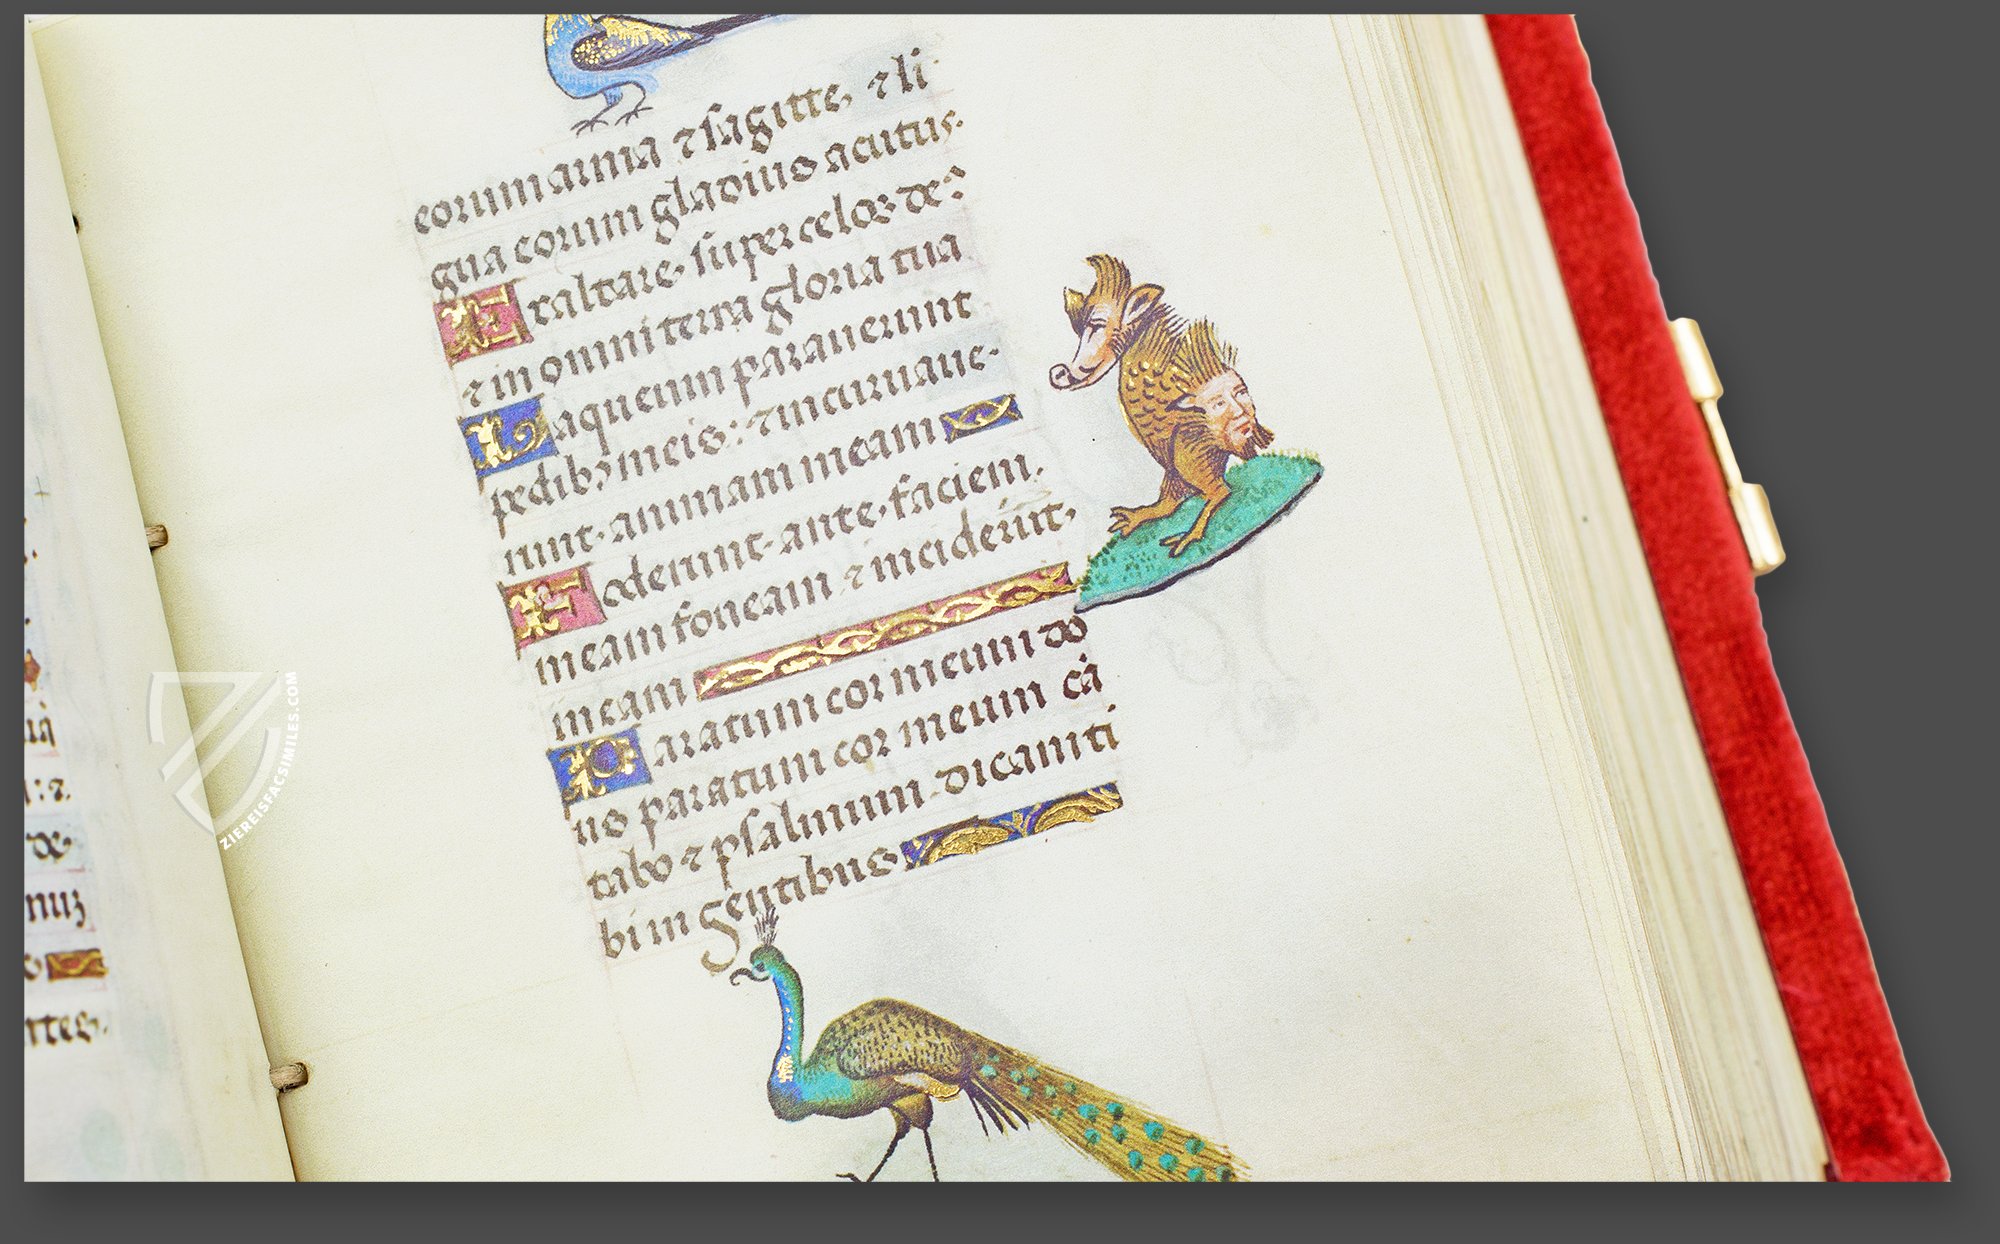 eorum arma ⁊ sagitte, ⁊ li
gua eorum gladius acutus.
Exaltare· super celos de⁹
⁊ in omni terra gloria tua
Laqueum parauerunt
pedibꝫ meis: ⁊ incuruaue-
runt· animam meam
Foderunt· ante· faciem.
meam foueam ⁊ inciderūt·
meam
Paratum cor meum do
us paratum cor meum cā
tabo ⁊ psalmum dicam ti
bi in gentibus
ZIEREISFACSIMILES.COM